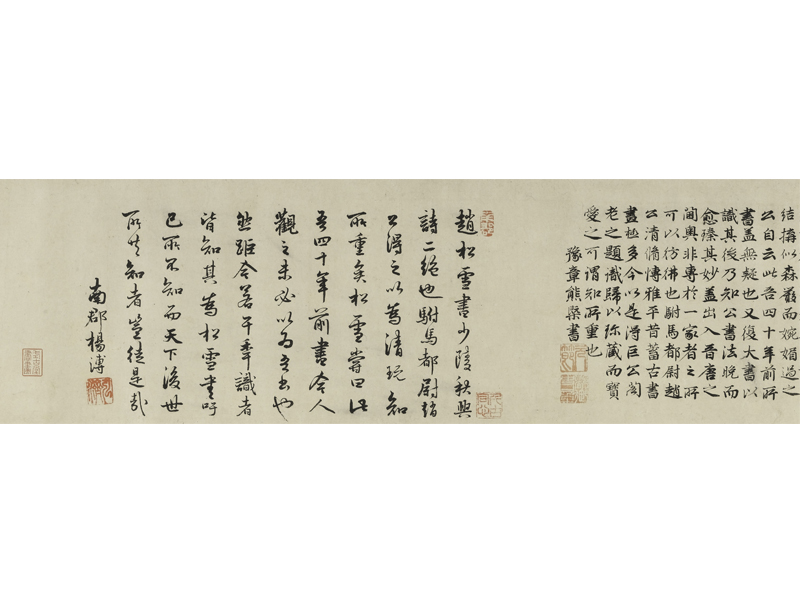 結搆似森嚴而婉娟過之
公自云此吾四十年前所
書蓋無疑也又復大書以
識其後乃知公書法晚而
愈臻其妙蓋出入晉唐之
閫奧非專於一家者之所
可以彷彿也駙馬都尉趙
公清脩博雅平昔蓄古書
畫極多今以是得巨公閣
老之題識歸以珎藏而寶
愛之可謂知所重也
豫章熊槩書
趙松雪書少陵秋興
詩二絕也駙馬都尉趙
公得之以為清玩知
所重矣松雪嘗曰此
吾四十年前書今人
觀之未必以為吾書也
然距今若干年識者
皆知其為松雪書吁
己所不知而天下後世
所共知者豈徒是哉
南郡楊溥